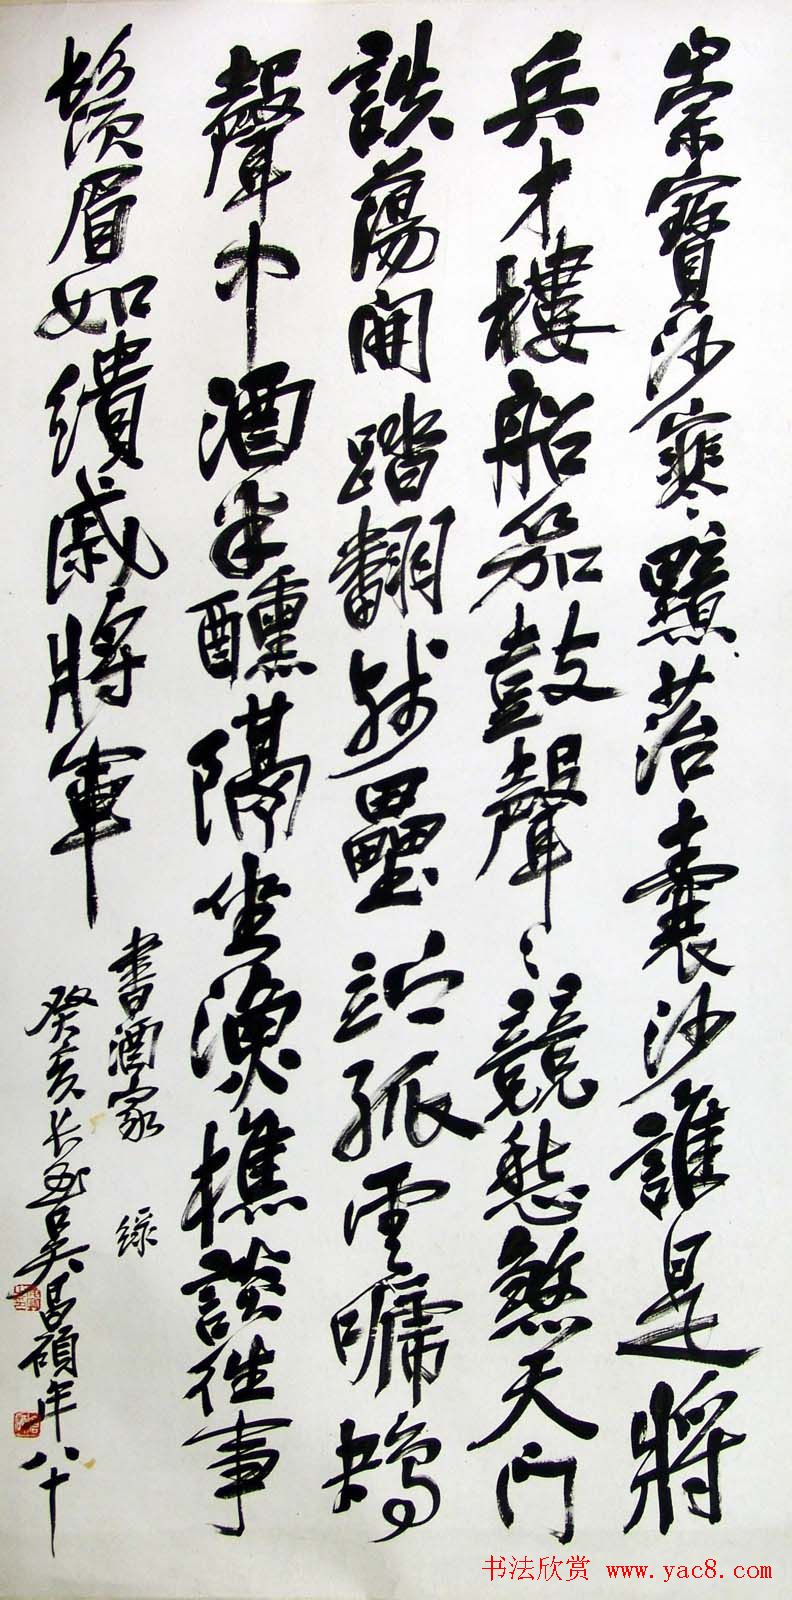 崇寶沙寒點落囊沙誰是將
兵才樓船笳鼓聲聲競愁煞天門
詄蕩開踏翻殘壘詔孤雲嘯鴣
聲中酒半醺隔坐漁樵談往事
鬚眉如繢戚將軍
書酒家 綠
癸亥長至吳昌碩年八十
书法欣赏 www.yac8.com